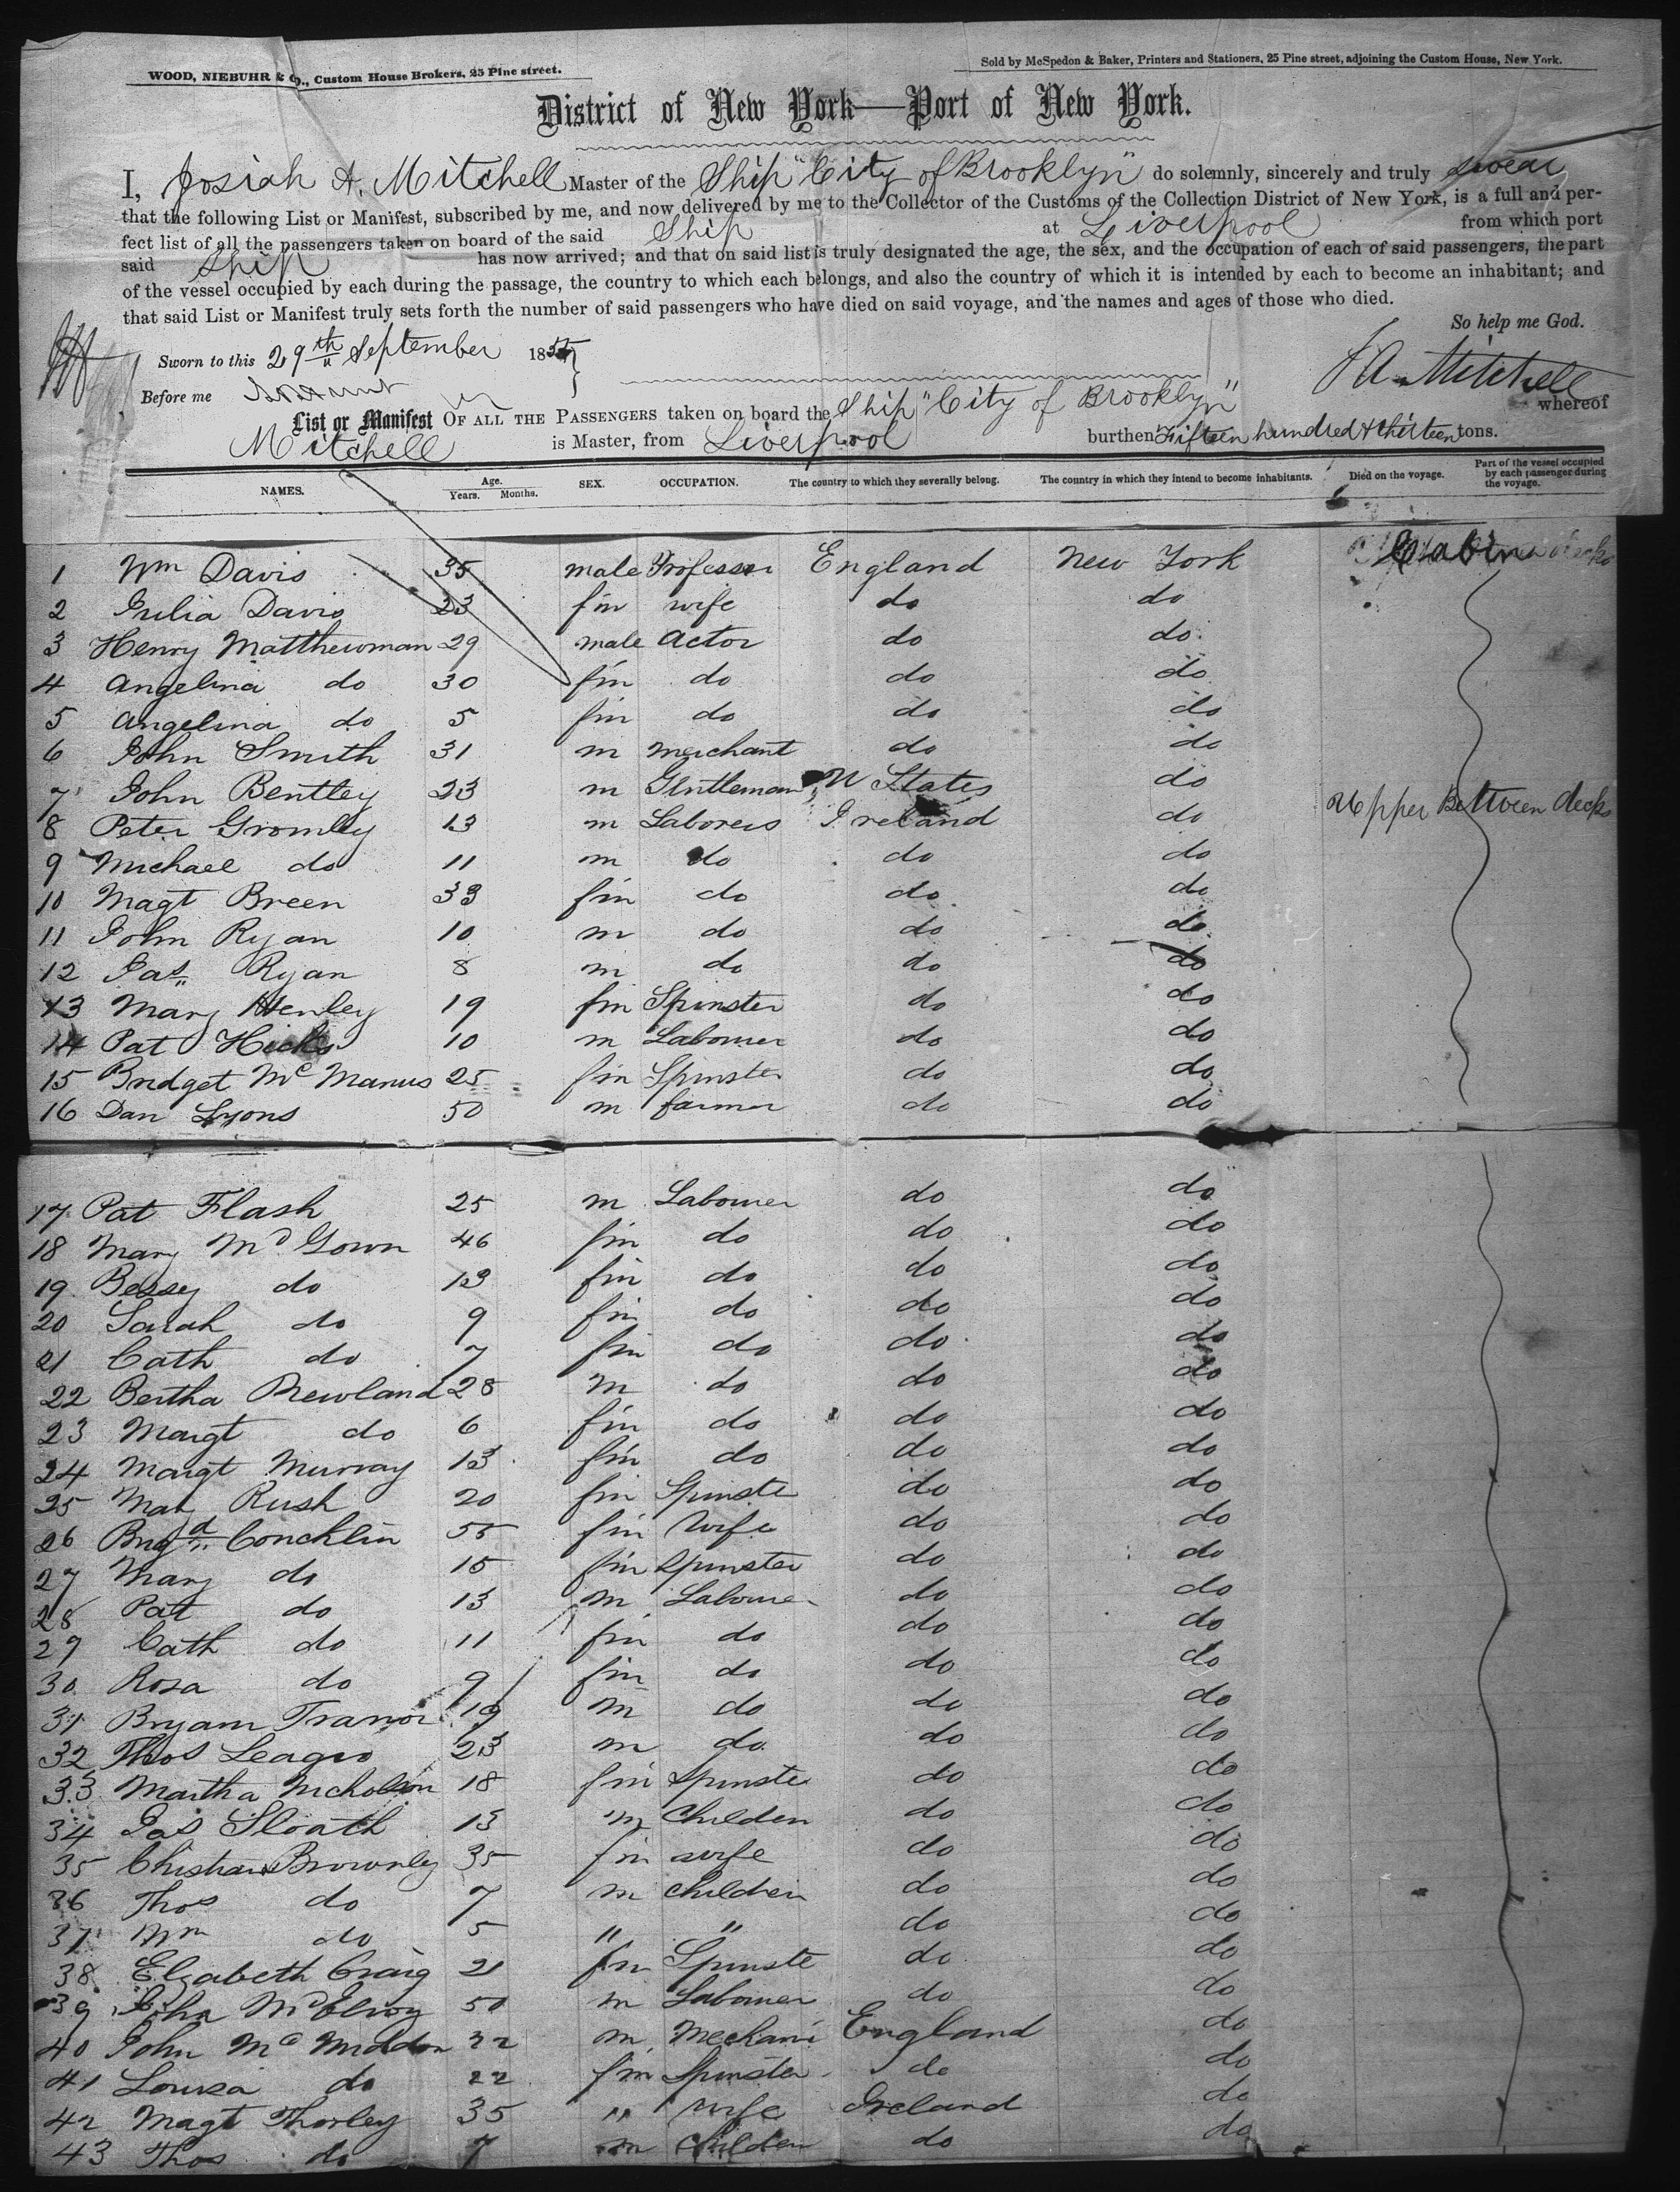 WOOD, NIEBUHR & Co., Custom House Brokers, 25 Pine street.
Sold by McSpedon & Baker, Printers and Stationers, 25 Pine street, adjoining the Custom House, New York.
District of New York—Port of New York.
I, Josiah A. Mitchell Master of the Ship "City of Brooklyn" do solemnly, sincerely and truly swear
that the following List or Manifest, subscribed by me, and now delivered by me to the Collector of the Customs of the Collection District of New York, is a full and per-
fect list of all the passengers taken on board of the said Ship at Liverpool from which port
said Ship has now arrived; and that on said list is truly designated the age, the sex, and the occupation of each of said passengers, the part
of the vessel occupied by each during the passage, the country to which each belongs, and also the country of which it is intended by each to become an inhabitant; and
that said List or Manifest truly sets forth the number of said passengers who have died on said voyage, and the names and ages of those who died.
So help me God.
Sworn to this 29th September 185
Before me
J A Mitchell
List or Manifest OF ALL THE PASSENGERS taken on board the Ship "City of Brooklyn" whereof
Mitchell is Master, from Liverpool burthen Fifteen hundred & thirteen tons.
NAMES. Age. Years. Months. SEX. OCCUPATION. The country to which they severally belong. The country in which they intend to become inhabitants. Died on the voyage. Part of the vessel occupied by each passenger during the voyage.
1 Wm Davis 35 male Professor England New York Cabin
2 Julia Davis 23 fm wife do do
3 Henry Matthewman 29 male Actor do do
4 Angelina do 30 fm do do do
5 Angelina do 5 fm do do do
6 John Smith 31 m merchant do do
7 John Bentley 23 m Gentleman U States do
8 Peter Gromley 13 m Laborers Ireland do Upper Between decks
9 Michael do 11 m do do do
10 Magt Breen 33 fm do do do
11 John Ryan 10 m do do do
12 Jas Ryan 8 m do do do
13 Mary Henley 19 fm Spinster do do
14 Pat Hicks 10 m Labourer do do
15 Bridget Mc Manus 25 fm Spinster do do
16 Dan Lyons 50 m farmer do do
17 Pat Flash 25 m Labourer do do
18 Mary Mc Gown 46 fm do do do
19 Bessey do 13 fm do do do
20 Sarah do 9 fm do do do
21 Cath do 7 fm do do do
22 Bertha 28 m do do do
23 Margt do 6 fm do do do
24 Margt Murray 13 fm do do do
25 Mary Rush 20 fm Spinste do do
26 Brigd Concklin 55 fm Wife do do
27 Mary do 15 fm Spinster do do
28 Pat do 13 m Labourer do do
29 Cath do 11 fm do do do
30 Rosa do 9 fm do do do
31 Bryam Tranor 19 m do do do
32 Thos 23 m do do do
33 Martha Nicholson 18 fm Spinste do do
34 Jas Sloath 13 m Children do do
35 Christian Brownley 35 fm wife do do
36 Thos do 7 m children do do
37 Wm do 5 " " do do
38 Elzabeth Craig 21 fm Spinste do do
39 John McElroy 50 m Labourer do do
40 John Mc 32 m Mechani England do
41 Louisa do 22 fm Spinster do do
42 Magt Thorley 35 " wife Ireland do
43 Thos do 7 m Children do do